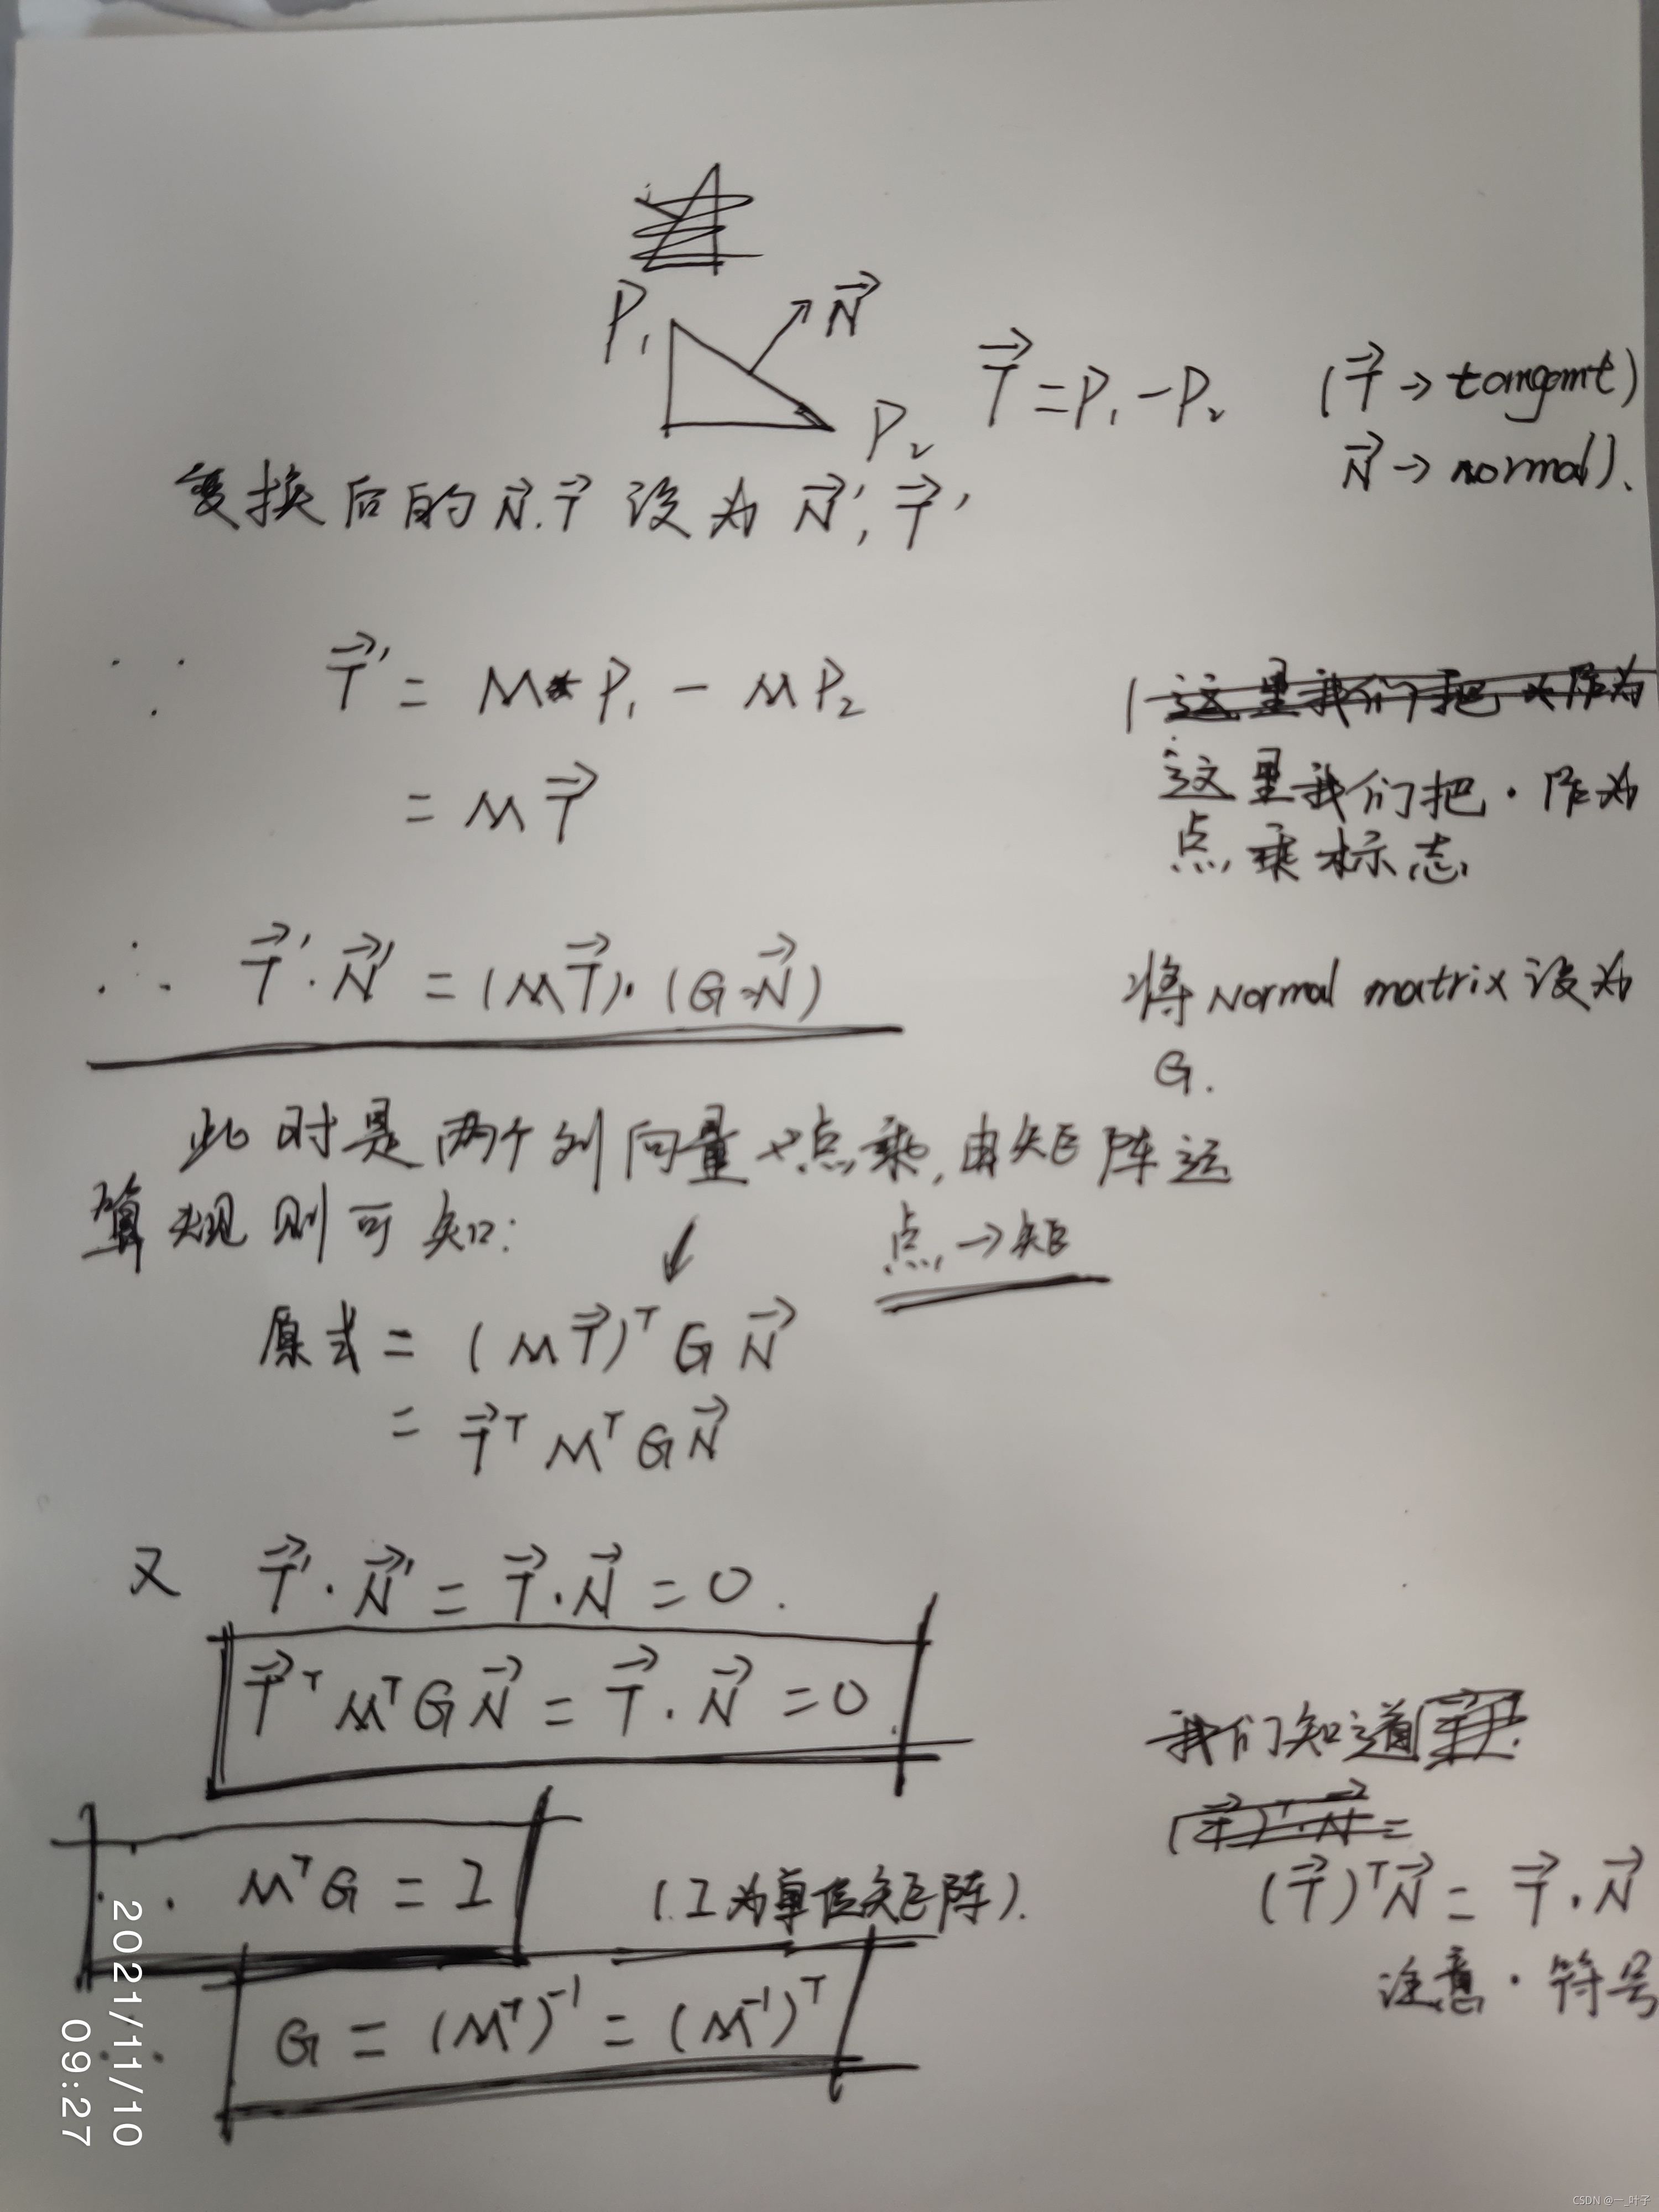 P₁
N⃗
T⃗ = P₁ - P₂ (T⃗ → tangemt)
P₂
N⃗ → normal).
变换后的 N⃗.T⃗ 设为 N⃗′, T⃗′
∵ T⃗′ = M P₁ - MP₂
这里我们把 作为
= M T⃗
这里我们把 · 作为
点乘标志
∴ T⃗′·N⃗′ = (MT⃗)·(G·N⃗)
将 Normal matrix 设为
G.
此时是两个列向量 点乘,由矩阵运
算规则可知:
点 → 矩
原式 = (MT⃗)ᵀ G N⃗
= T⃗ᵀ Mᵀ G N⃗
又 T⃗′·N⃗′ = T⃗·N⃗ = 0.
T⃗ᵀ Mᵀ G N⃗ = T⃗·N⃗ = 0.
我们知道
(T⃗)ᵀ·N⃗ =
∴ MᵀG = I (I为单位矩阵).
(T⃗)ᵀN⃗ = T⃗·N⃗
注意 · 符号
∴ G = (Mᵀ)⁻¹ = (M⁻¹)ᵀ
2021/11/10
09:27
CSDN @一_叶子